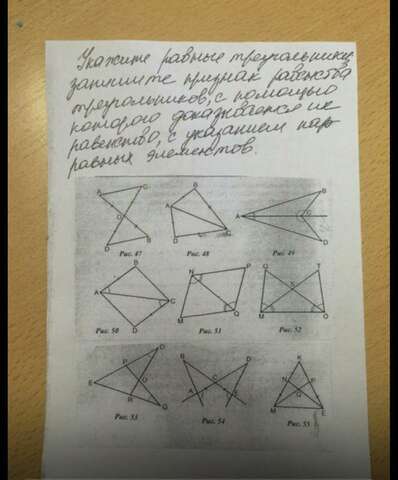 Укажите равные треугольники,
запишите признак равенства
треугольников, с помощью
которого доказывается их
равенство, с указанием пар
равных элементов.
A C O D B
Рис. 47
B A D C
Рис. 48
A B C D
Рис. 49
B A C D
Рис. 50
N P M Q
Рис. 51
Q T M O
Рис. 52
D P O E R Q
Рис. 53
B D C A E
Рис. 54
K N P Q M E
Рис. 55